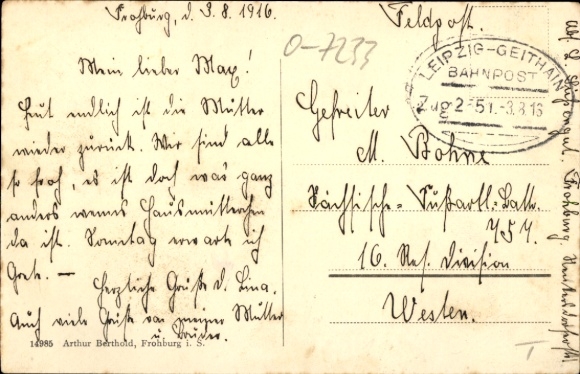 Frohburg, d. 3.8.1916.
Mein lieber Max!
Heut endlich ist die Mutter
wieder zurück. Wir sind alle
so froh, es ist doch was ganz
anders wenns Hausmütterchen
da ist. Sonntag erwarte ich
Grete. —
Herzliche Grüße d. Lina.
Auch viele Grüße von meiner Mutter
u. Bruder.
14985 Arthur Berthold, Frohburg i. S.
Feldpost.
0-7233
LEIPZIG-GEITHAIN
BAHNPOST
Zug 2451.-3.8.16
Gefreiter
M. Böhme
Sächsische- Fußartl.-Battr.
16. Res. Division
Westen.
Abs. L. Frohburg